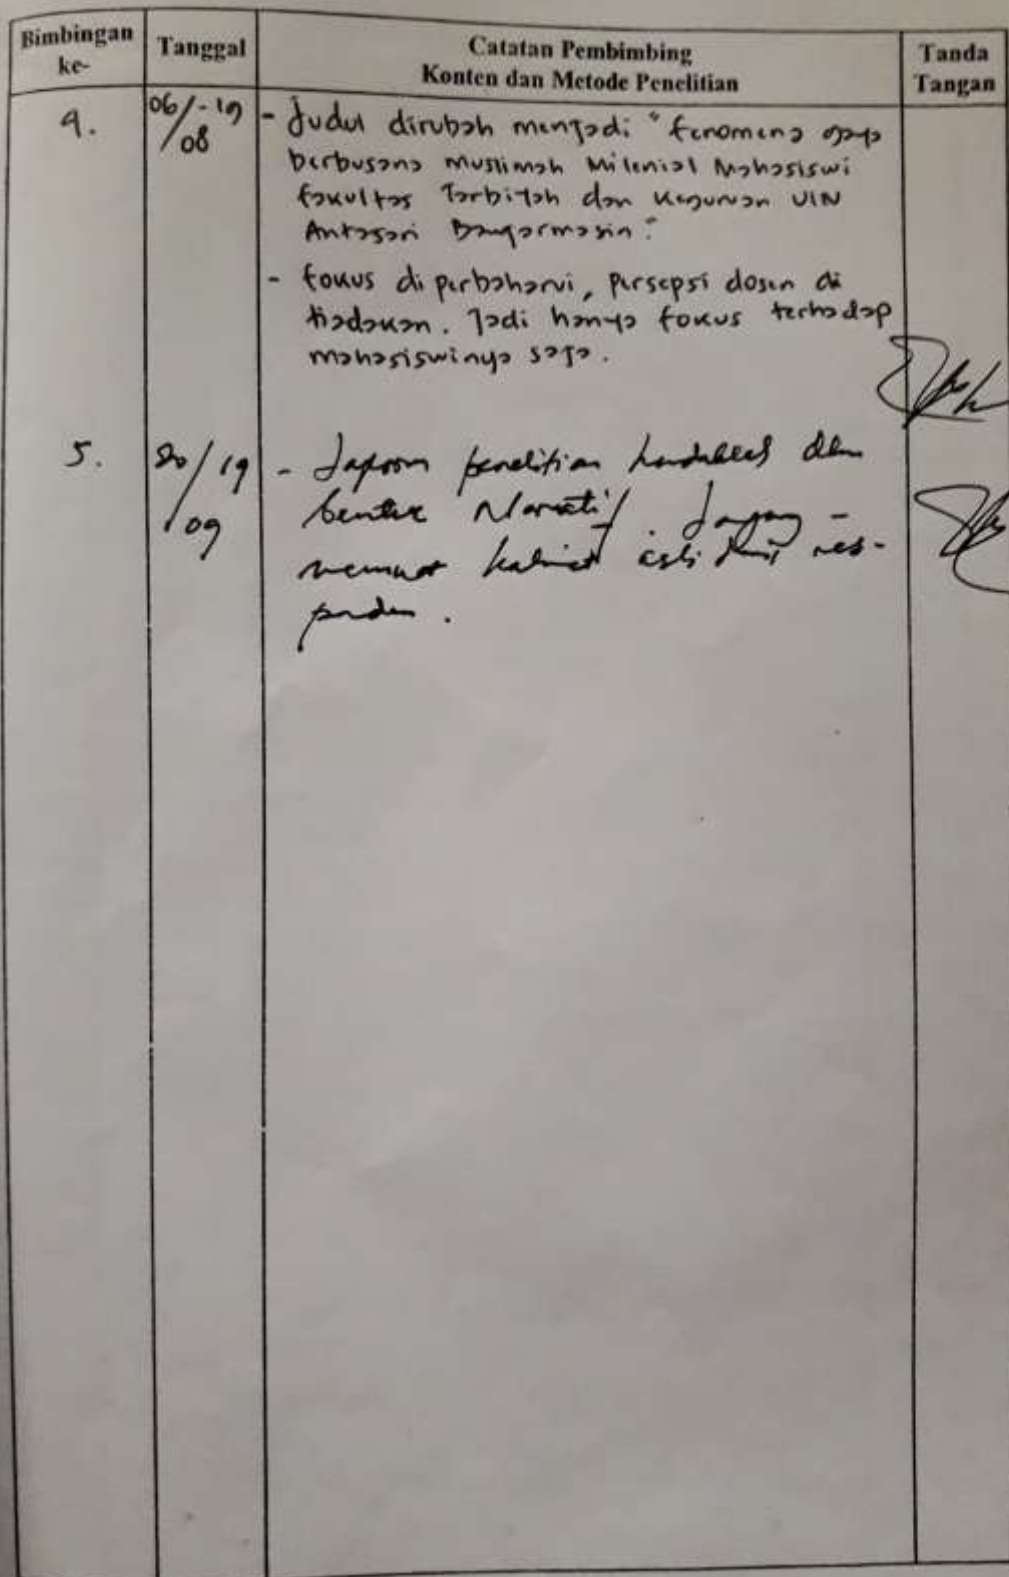 Bimbingan ke-
Tanggal
Catatan Pembimbing
Konten dan Metode Penelitian
Tanda Tangan
4.
06/08-19
- Judul dirubah menjadi "fenomena gaya
berbusana muslimah Milenial Mahasiswi
fakultas Tarbiyah dan Keguruan UIN
Antasari Banjarmasin."
- fokus di perbaharui, persepsi dosen di
tiadakan. Jadi hanya fokus terhadap
mahasiswinya saja.
5.
20/09 19
- Laporan penelitian dlm
bentuk Naratif. Jangan -
memuat kalimat asli dari res-
ponden.